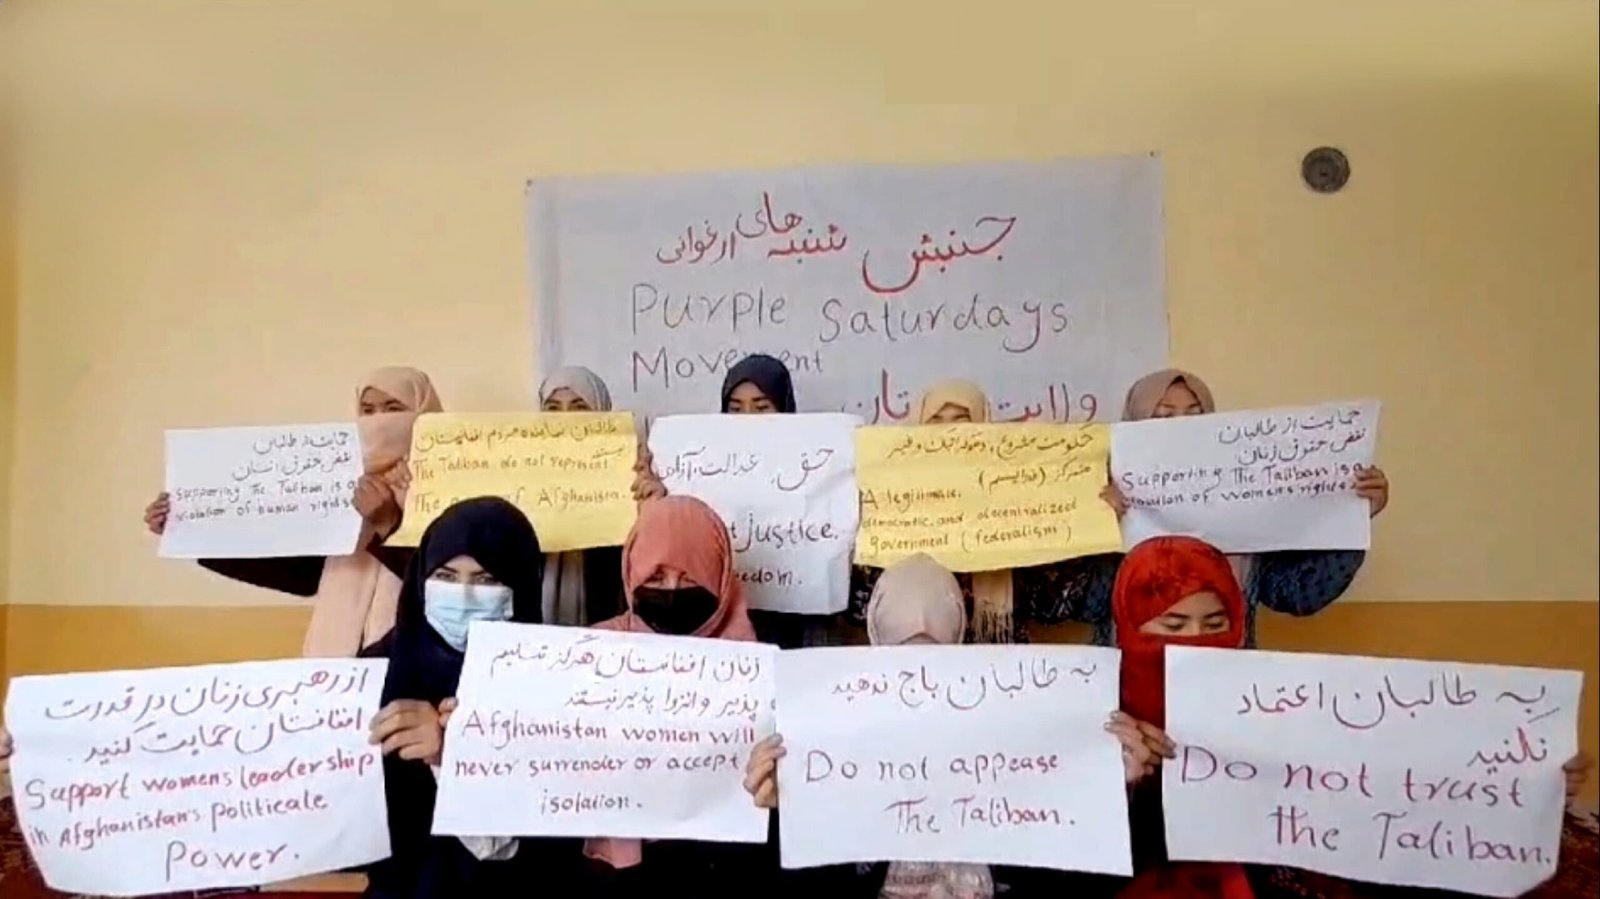 جنبش شنبه‌های ارغوانی
Purple Saturdays
Movement
ولایت
تان
حمایت از طالبان
نقض حقوق انسان
Supporting The Taliban is a
violation of human rights
طالبان نماینده مردم افغانستان
نیستند
The Taliban do not represent
The of Afghanistan.
حق، عدالت، آزادی
justice.
حکومت مشروع، دموکراتیک و غیر
متمرکز (فدرالیسم)
A legitimate,
democratic, and decentralized
government (federalism)
حمایت از طالبان
نقض حقوق زنان
Supporting The Taliban is a
violation of women's rights
از رهبری زنان در قدرت
افغانستان حمایت کنید.
Support womens leadership
in Afghanistan's politicale
power.
زنان افغانستان هرگز تسلیم
پذیر و انزوا پذیر نیستند
Afghanistan women will
never surrender or accept
isolation.
به طالبان باج ندهید
Do not appease
The Taliban.
به طالبان اعتماد
نکنید
Do not trust
the Taliban.